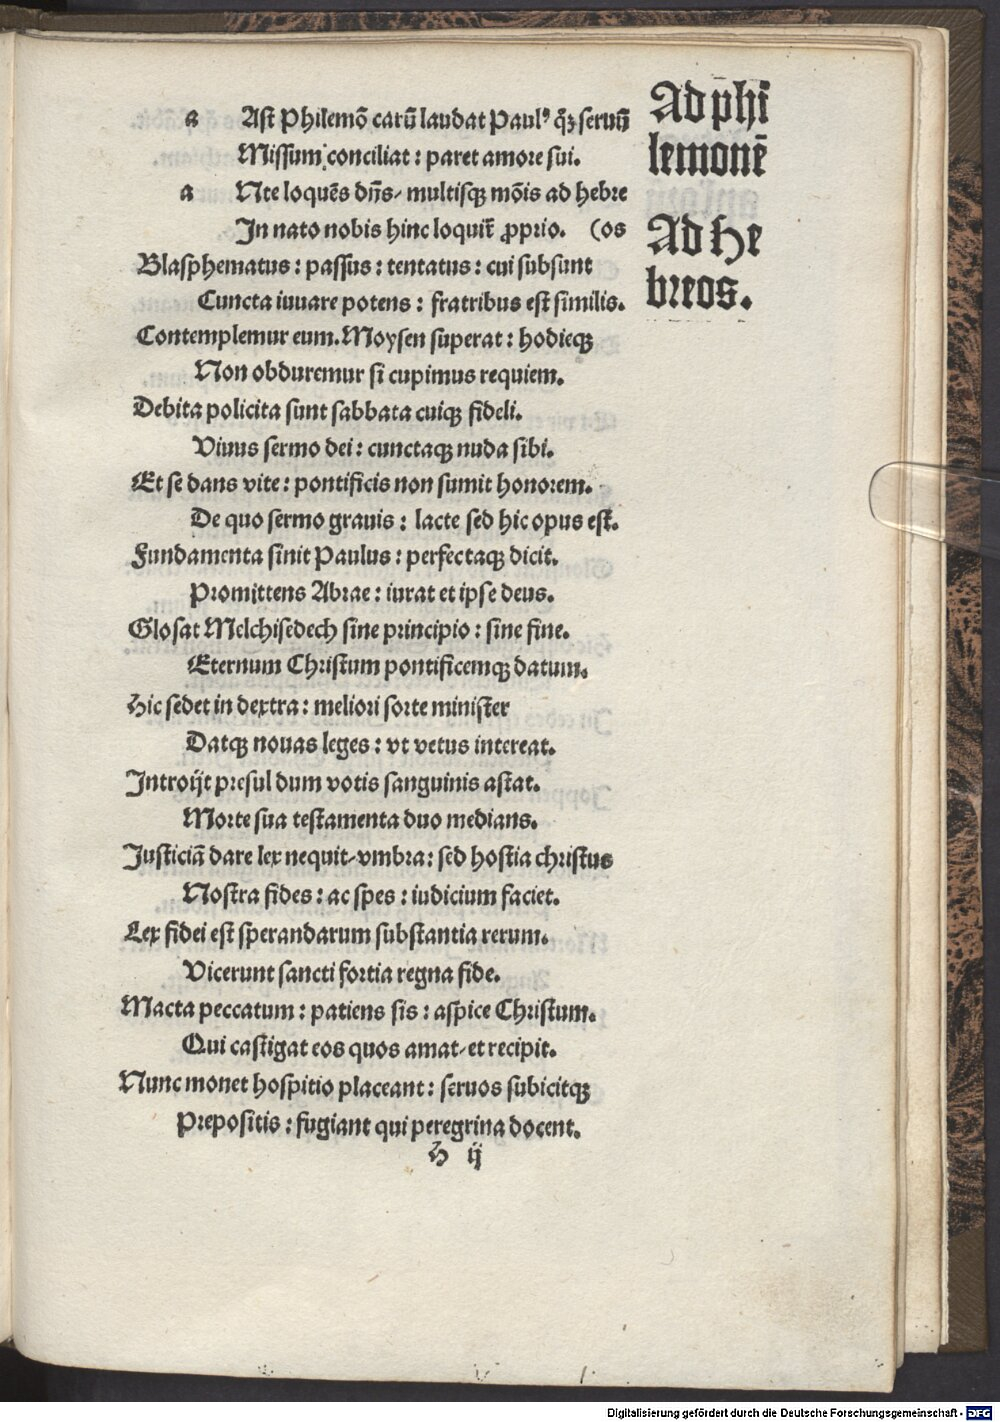 Ad phi
lemonē
a Ast Philemō carū laudat Paulꝰ q̄ꝫ seruū
Missum conciliat : paret amore sui.
Ad He
breos.
a Nte loquēs dn̄s/ multisqꝫ mōis ad hebre
In nato nobis hinc loquit̄ ꝓprio. (os
Blasphematus : passus : tentatus : cui subsunt
Cuncta iuuare potens : fratribus est similis.
Contemplemur eum. Moysen superat : hodieqꝫ
Non obduremur si cupimus requiem.
Debita policita sunt sabbata cuiqꝫ fideli.
Viuus sermo dei : cunctaqꝫ nuda sibi.
Et se dans vite : pontificis non sumit honorem.
De quo sermo grauis : lacte sed hic opus est.
Fundamenta sinit Paulus : perfectaqꝫ dicit.
Promittens Abrae : iurat et ipse deus.
Glosat Melchisedech sine principio : sine fine.
Eternum Christum pontificemqꝫ datum.
Hic sedet in dextra : meliori sorte minister
Datqꝫ nouas leges : vt vetus intereat.
Introijt presul dum votis sanguinis astat.
Morte sua testamenta duo medians.
Justiciā dare lex nequit/ vmbra : sed hostia christus
Nostra fides : ac spes : iudicium faciet.
Lex fidei est sperandarum substantia rerum.
Vicerunt sancti fortia regna fide.
Macta peccatum : patiens sis : aspice Christum.
Qui castigat eos quos amat/ et recipit.
Nunc monet hospitio placeant : seruos subicitqꝫ
Prepositis : fugiant qui peregrina docent.
H ij
Digitalisierung gefördert durch die Deutsche Forschungsgemeinschaft - DFG